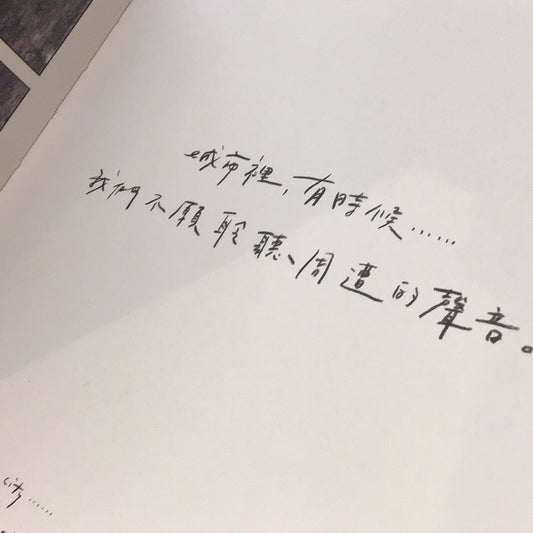 城市裡，有時候……
我們不願聆聽周遭的聲音。
city……